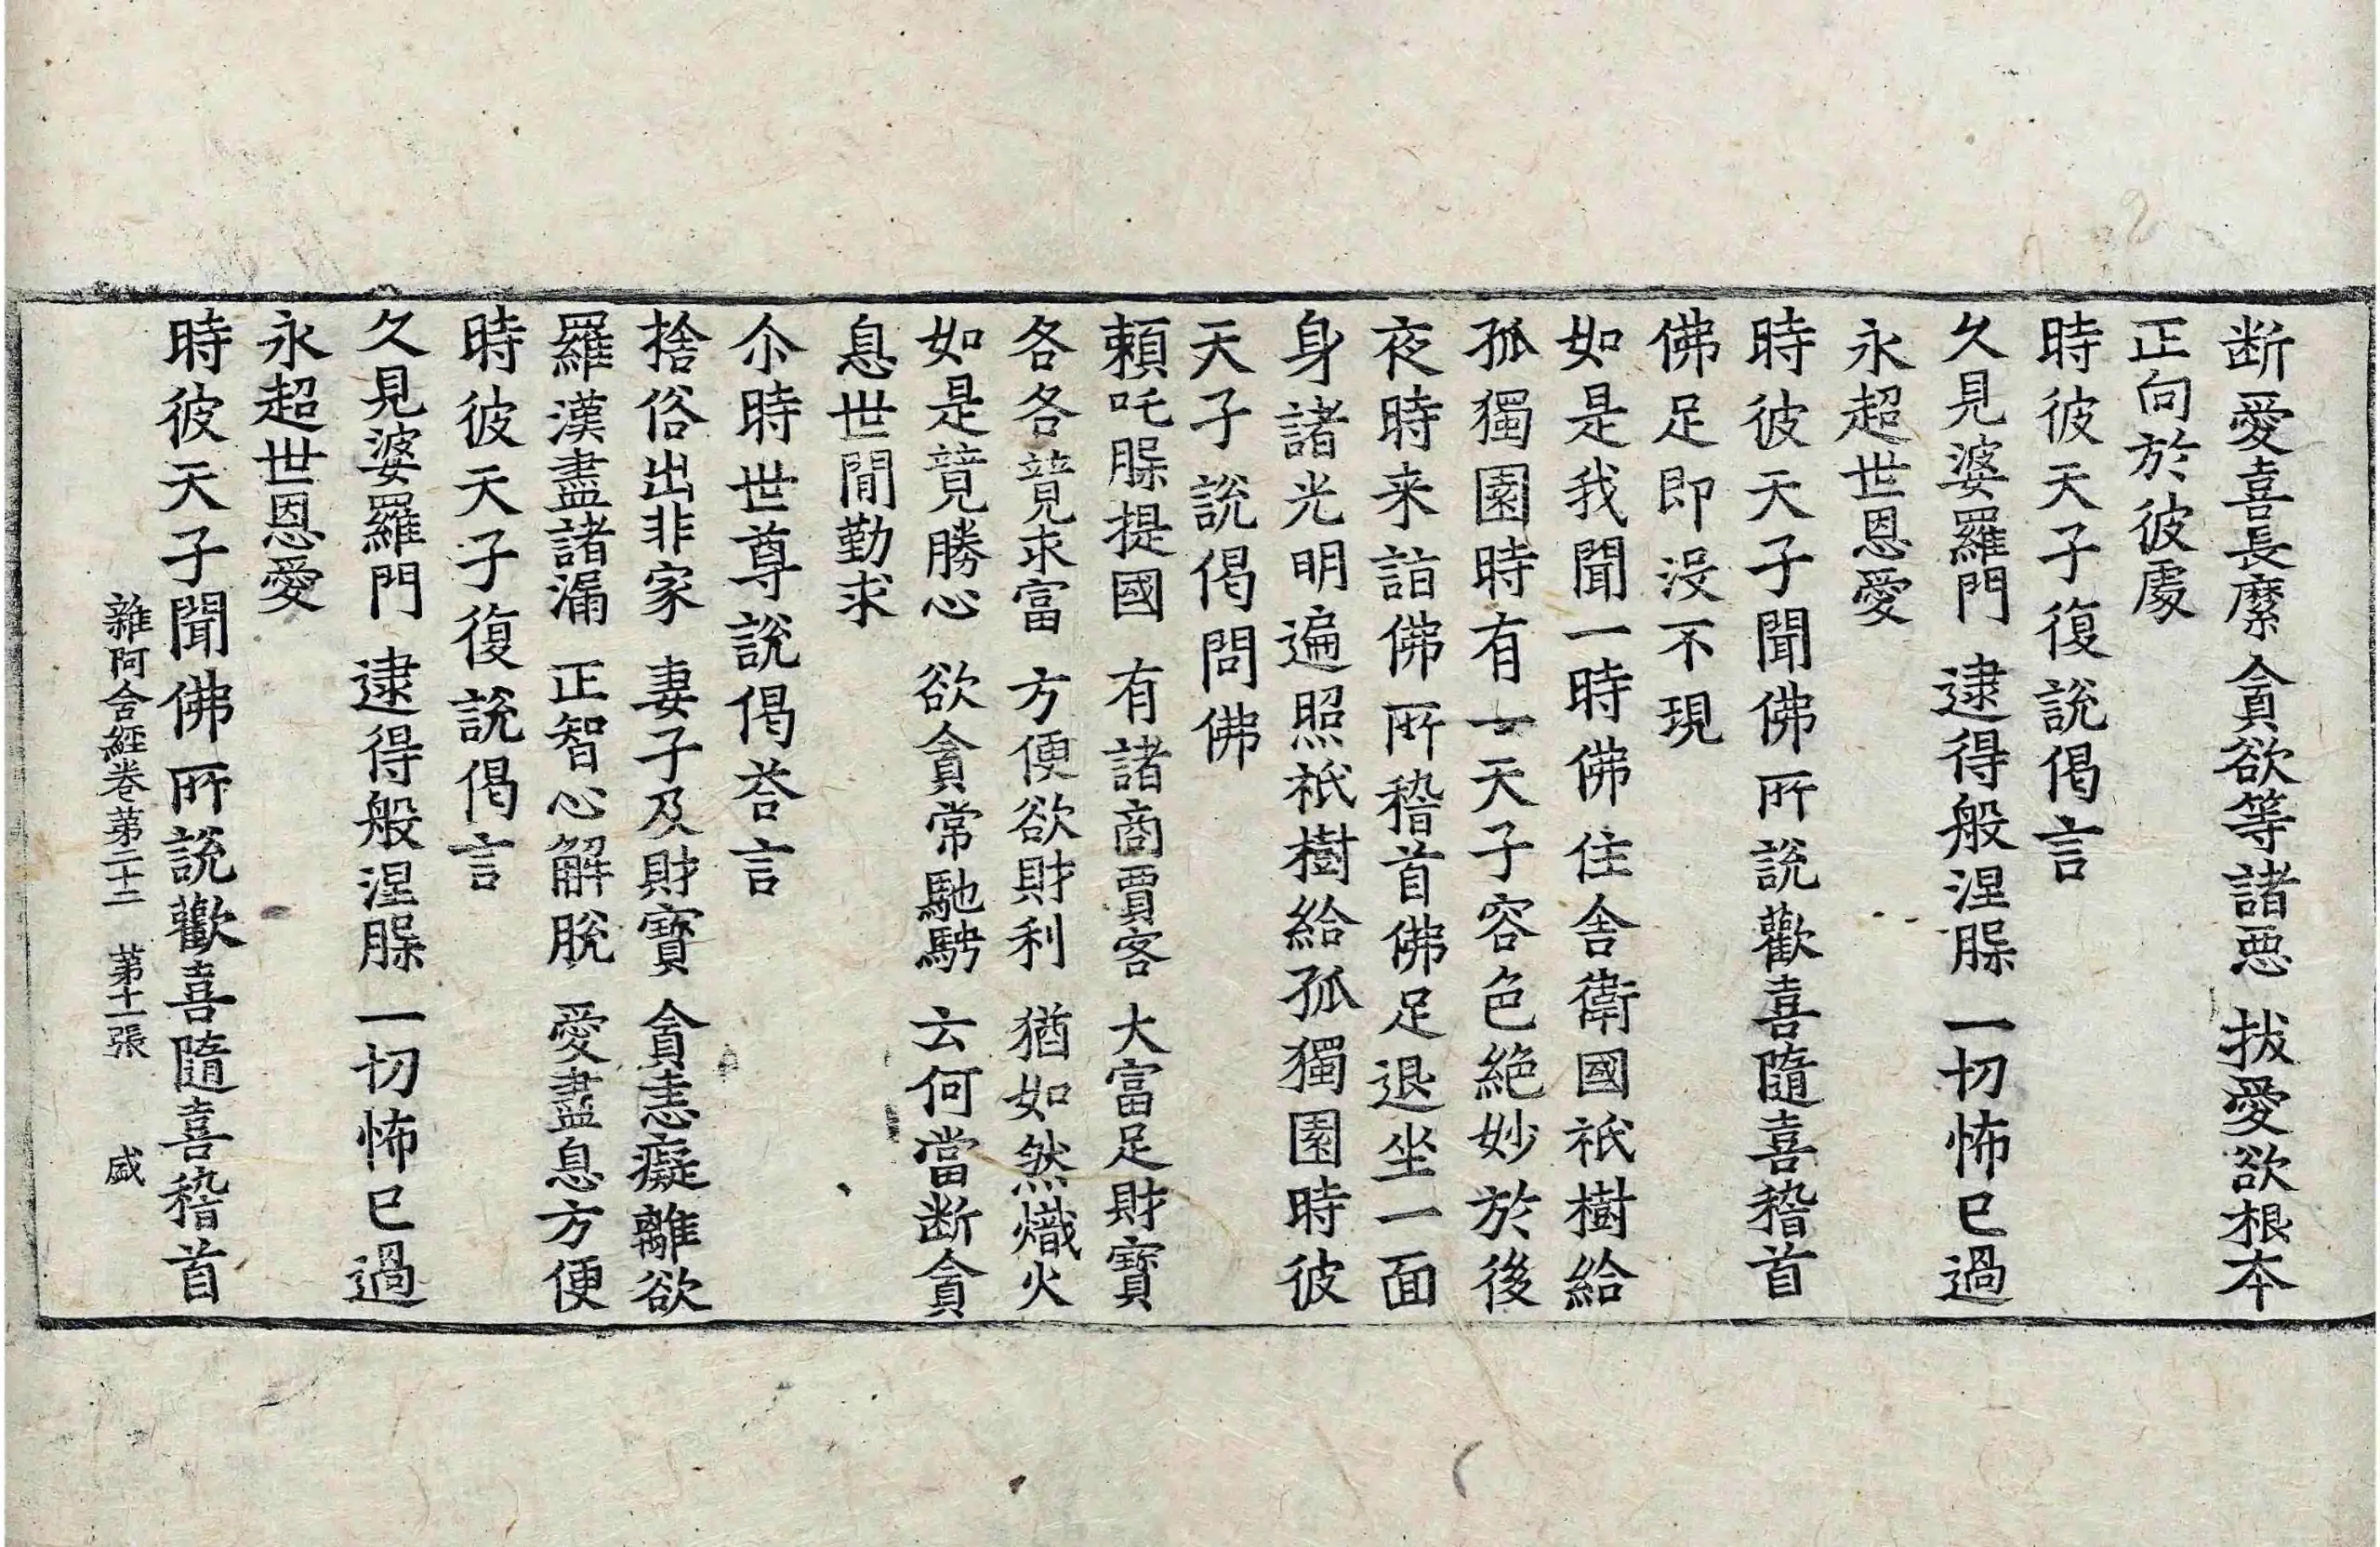 断愛喜長縻 貪欲等諸惡 拔愛欲根本
正向於彼處
時彼天子復說偈言
久見婆羅門 逮得般涅槃 一切怖已過
永超世恩愛
時彼天子聞佛所說歡喜隨喜稽首
佛足即没不現
如是我聞一時佛住舍衛國祇樹給
孤獨園時有一天子容色絶妙於後
夜時来詣佛所稽首佛足退坐一面
身諸光明遍照祇樹給孤獨園時彼
天子說偈問佛
頼吒槃提國 有諸商賈客 大富足財寶
各各競求富 方便欲財利 猶如然熾火
如是競勝心 欲貪常馳騁 云何當断貪
息世閒勤求
尒時世尊說偈荅言
捨俗出非家 妻子及財寶 貪恚癡離欲
羅漢盡諸漏 正智心解脫 愛盡息方便
時彼天子復說偈言
久見婆羅門 逮得般涅槃 一切怖已過
永超世恩愛
時彼天子聞佛所說歡喜隨喜稽首
雜阿含經卷第二十二 第十一張 盛